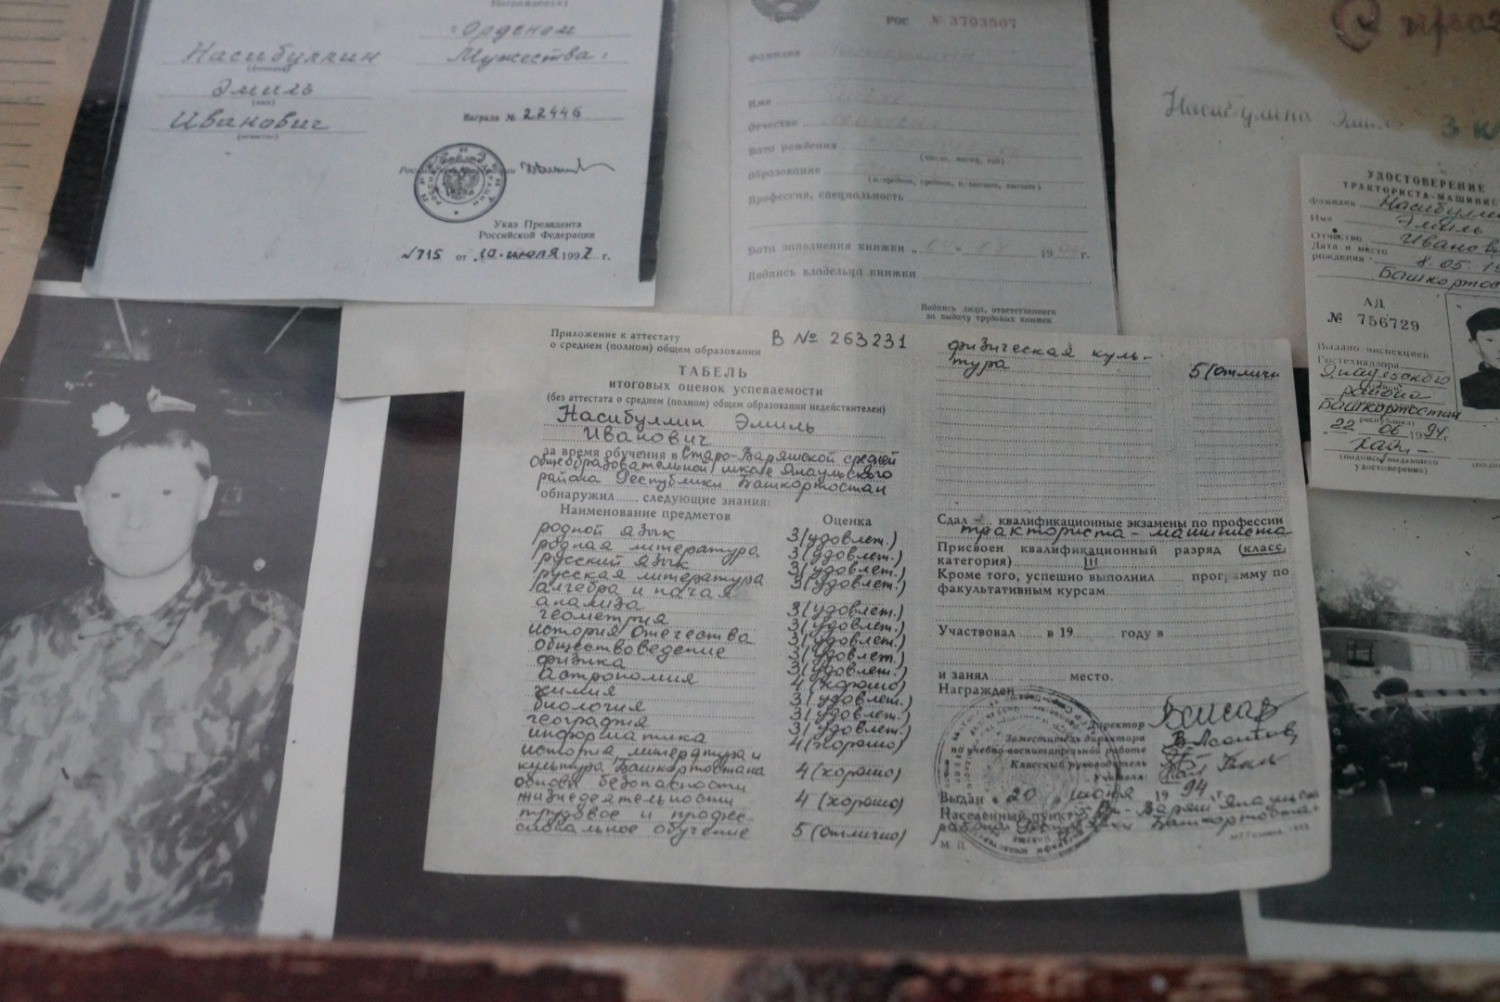 Орденом
Мужества
Насибуллин
Эмиль
Иванович
Награда № 22446
Указ Президента
Российской Федерации
№ 715 от 10 июля 1997 г.
РОС № 3703507
фамилия
Имя
Отчество
Дата рождения
(число, месяц, год)
образование
Профессия, специальность
Дата заполнения книжки
Подпись владельца книжки
Подпись лица, ответственного
за выдачу трудовых книжек
Насибулина Эмиля
УДОСТОВЕРЕНИЕ
ТРАКТОРИСТА-МАШИНИС
Фамилия Насибуллин
Имя Эмиль
Отчество Иванов
Дата и место
рождения 8.05.19
Башкортос
АД
№ 756729
Выдано инспекцией
Гостехнадзора
Янаульского
района
Башкортостан
22 06 1994 г.
(подпись выдавшего
удостоверение)
Приложение к аттестату
о среднем (полном) общем образовании
В № 263231
ТАБЕЛЬ
итоговых оценок успеваемости
(без аттестата о среднем (полном) общем образовании недействителен)
Насибуллин Эмиль
Иванович
за время обучения в Старо-Варяшской средней
общеобразовательной школе Янаульского
района Республики Башкортостан
обнаружил следующие знания:
Наименование предметов Оценка
родной язык 3 (удовлет.)
родная литература 3 (удовлет.)
русский язык 3 (удовлет.)
русская литература 3 (удовлет.)
алгебра и начала
анализа 3 (удовлет.)
геометрия 3 (удовлет.)
история Отечества 3 (удовлет.)
обществоведение 3 (удовлет.)
физика 3 (удовлет.)
астрономия 4 (хорошо)
химия 3 (удовлет.)
биология 3 (удовлет.)
география 3 (удовлет.)
информатика 4 (хорошо)
история, литература и
культура Башкортостана 4 (хорошо)
основы безопасности
жизнедеятельности 4 (хорошо)
трудовое и профес-
сиональное обучение 5 (отлично)
физическая куль-
тура 5 (отлично
Сдал квалификационные экзамены по профессии
тракториста-машиниста
Присвоен квалификационный разряд (класс,
категория) III
Кроме того, успешно выполнил программу по
факультативным курсам
Участвовал в 19 году в
и занял место.
Награжден
Директор
Заместитель директора
по учебно-воспитательной работе
Классный руководитель
Учителя
Выдан « 20 » июня 19 94
Населенный пункт
М. П.